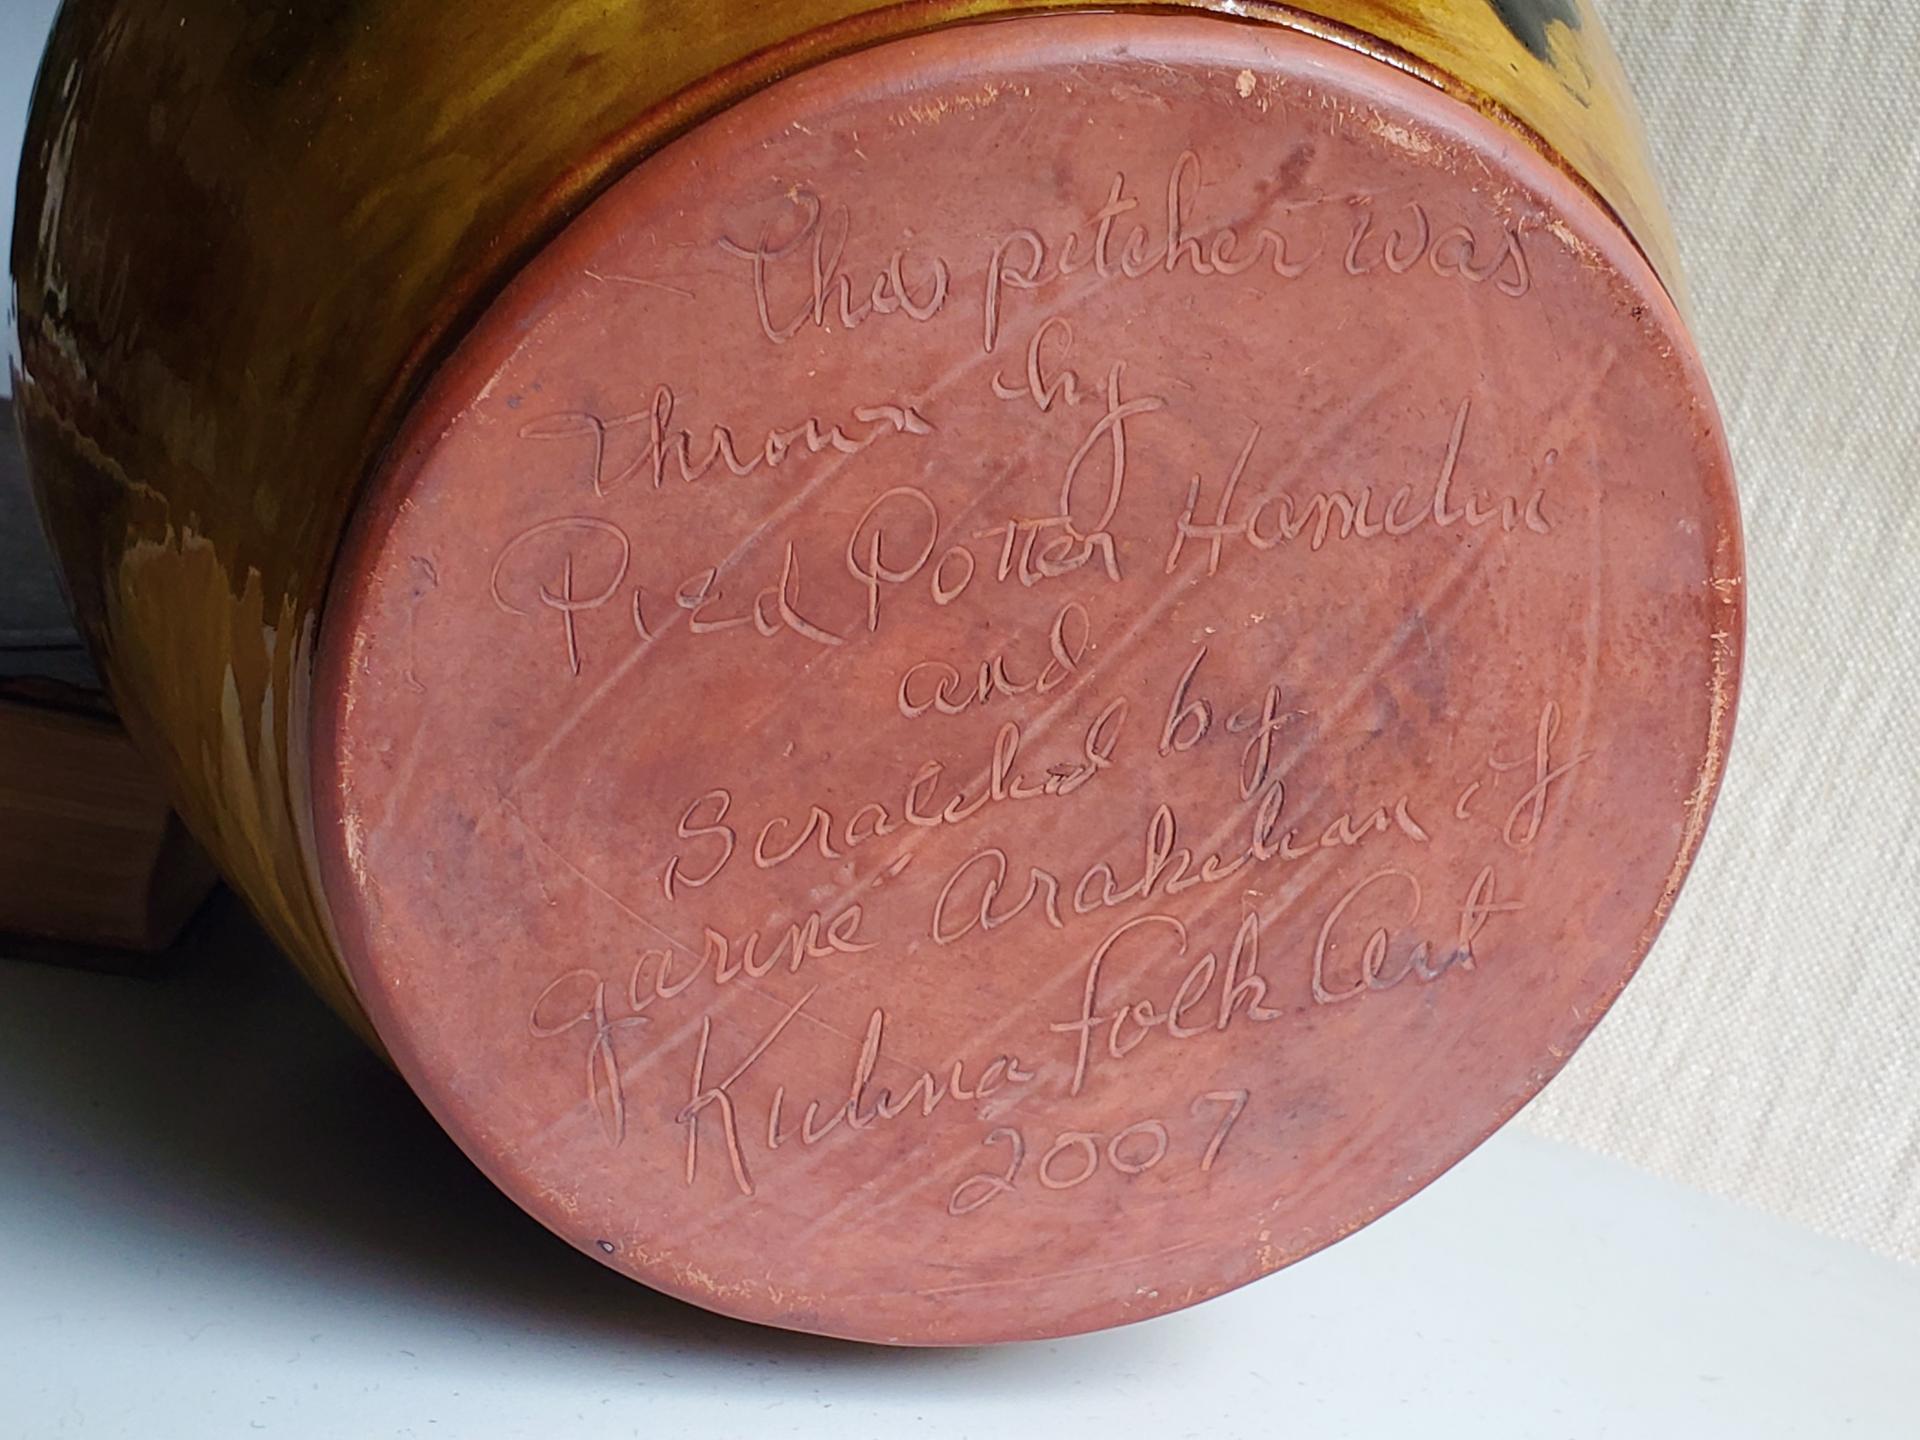 This pitcher was
Thrown by
Pied Potter Hamelin
and
Scratched by
Garine Arakelian of
Kulina Folk Art
2007